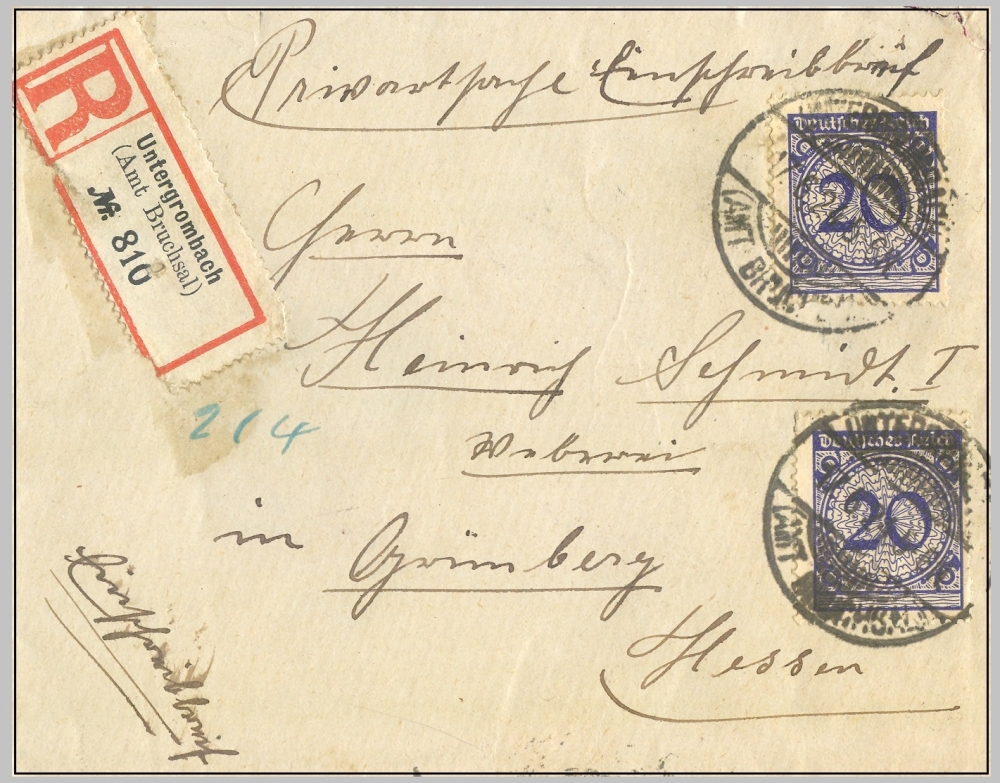 Privatsache Einschreibbrief
R
Untergrombach
(Amt Bruchsal)
№ 810
Deutsches Reich
20
(AMT BRUCHSAL)
Herrn
Heinrich Schmidt. I
Weberei
in Grünberg
Hessen
214
Deutsches Reich
20
UNTERGROMBACH
(AMT BRUCHSAL)
Einschreibbrief